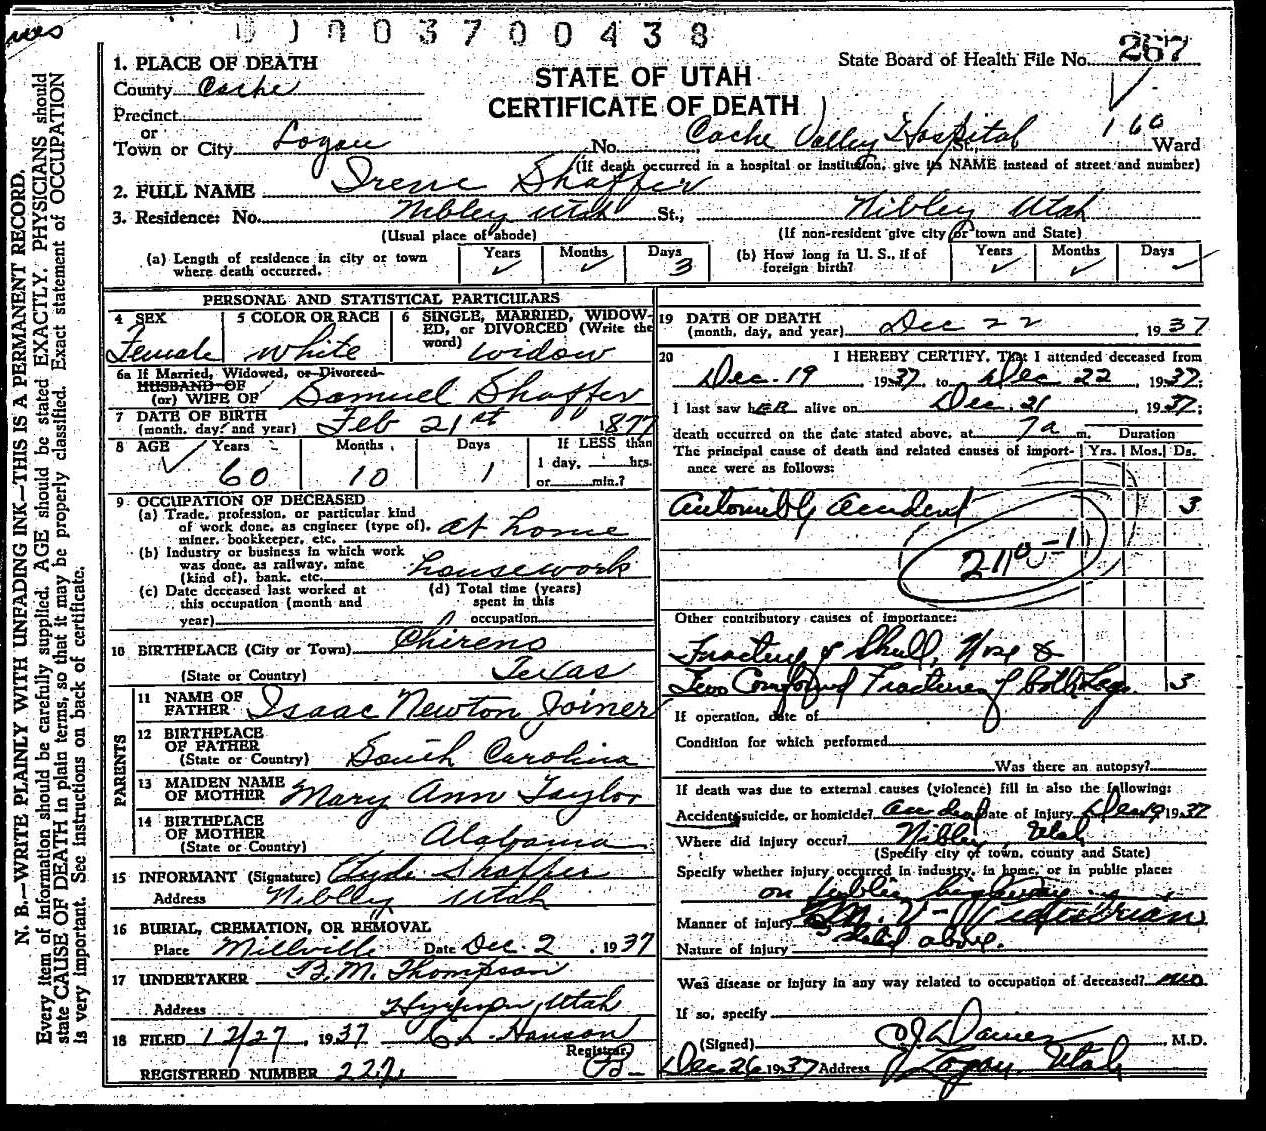 0003700438
State Board of Health File No. 267
STATE OF UTAH
CERTIFICATE OF DEATH
1. PLACE OF DEATH
County Cache
Precinct
or
Town or City Logan No. Cache Valley Hospital St., 160 Ward
(If death occurred in a hospital or institution, give its NAME instead of street and number)
2. FULL NAME Irene Shaffer
3. Residence: No. Nibley Utah St., Nibley Utah
(Usual place of abode) (If non-resident give city or town and State)
(a) Length of residence in city or town where death occurred. Years ✓ Months ✓ Days 3
(b) How long in U. S., if of foreign birth? Years ✓ Months ✓ Days ✓
PERSONAL AND STATISTICAL PARTICULARS
4 SEX Female
5 COLOR OR RACE White
6 SINGLE, MARRIED, WIDOWED, or DIVORCED (Write the word) widow
6a If Married, Widowed, or Divorced
HUSBAND OF
(or) WIFE OF Samuel Shaffer
7 DATE OF BIRTH
(month, day, and year) Feb 21st 1877
8 AGE Years 60 Months 10 Days 1 If LESS than
1 day, hrs.
or min.?
9 OCCUPATION OF DECEASED
(a) Trade, profession, or particular kind
of work done, as engineer (type of),
miner, bookkeeper, etc. at home
(b) Industry or business in which work
was done, as railway, mine
(kind of), bank, etc. housework
(c) Date deceased last worked at
this occupation (month and
year)
(d) Total time (years)
spent in this
occupation
10 BIRTHPLACE (City or Town) Chireno
(State or Country) Texas
PARENTS
11 NAME OF
FATHER Isaac Newton Joiner
12 BIRTHPLACE
OF FATHER
(State or Country) South Carolina
13 MAIDEN NAME
OF MOTHER Mary Ann Taylor
14 BIRTHPLACE
OF MOTHER
(State or Country) Alabama
15 INFORMANT (Signature) Clyde Shaffer
Address Nibley Utah
16 BURIAL, CREMATION, OR REMOVAL
Place Millville Date Dec. 2, 1937
17 UNDERTAKER B. M. Thompson
Address Hyrum, Utah
18 FILED 12/27, 1937 C L Hanson
Registrar
REGISTERED NUMBER
19 DATE OF DEATH
(month, day, and year) Dec 22 1937
20 I HEREBY CERTIFY, That I attended deceased from
Dec. 19, 1937, to Dec 22, 1937;
I last saw her alive on Dec. 21, 1937;
death occurred on the date stated above, at 7a m. Duration
The principal cause of death and related causes of importance were as follows: Yrs. Mos. Ds.
Automibly accident 3
Other contributory causes of importance:
Fracture of Skull, Nose &
Two Compound Fractures of both Legs. 3
If operation, date of
Condition for which performed
Was there an autopsy?
If death was due to external causes (violence) fill in also the following:
Accident, suicide, or homicide? Accident Date of injury Dec 19 1937
Where did injury occur? Nibley, Utah
(Specify city or town, county and State)
Specify whether injury occurred in industry, in home, or in public place:
on public highway
Manner of injury
Nature of injury Stated above.
Was disease or injury in any way related to occupation of deceased? no
If so, specify
(Signed) , M.D.
Dec 26 1937 Address Logan Utah
N. B.—WRITE PLAINLY WITH UNFADING INK—THIS IS A PERMANENT RECORD.
Every item of information should be carefully supplied. AGE should be stated EXACTLY. PHYSICIANS should
state CAUSE OF DEATH in plain terms, so that it may be properly classified. Exact statement of OCCUPATION
is very important. See instructions on back of certificate.